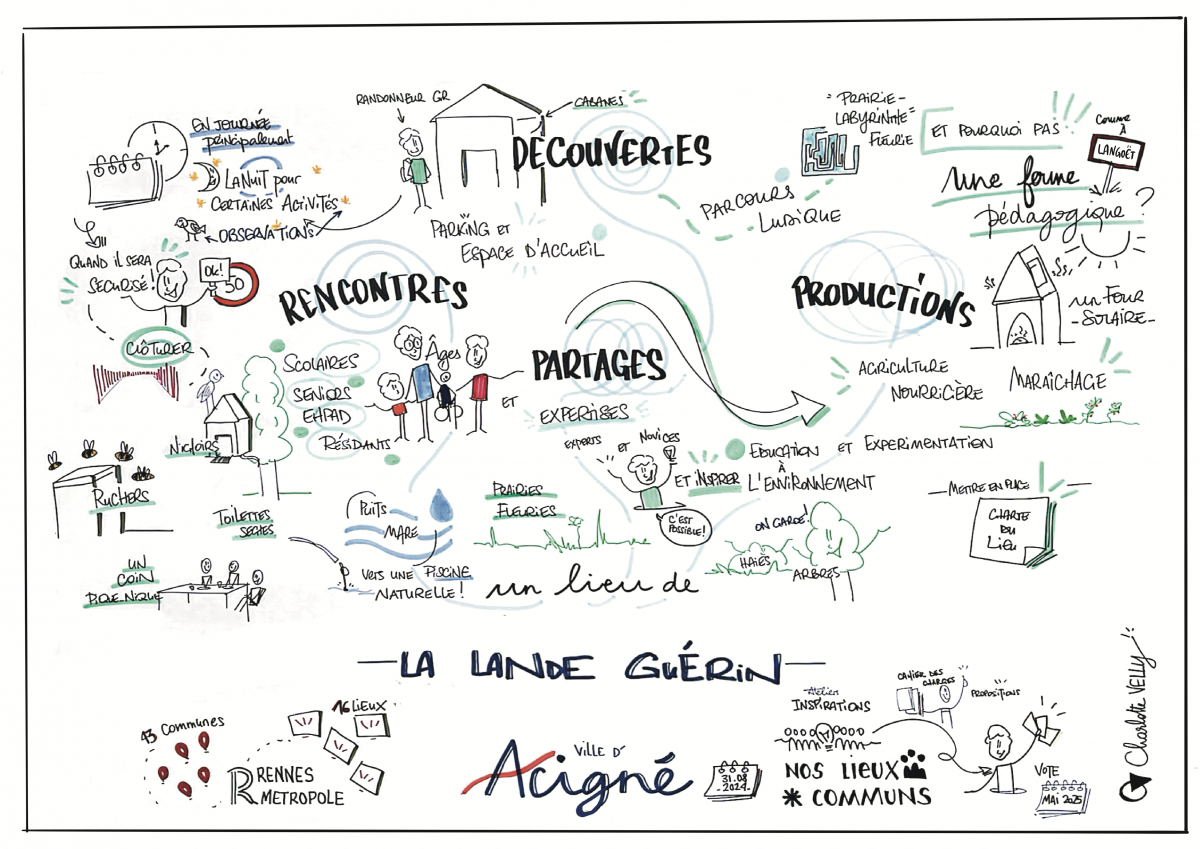 EN JOURNÉE
principalement
LA NUIT pour
CERTAINES ACTIVITÉS
OBSERVATIONS
QUAND IL SERA
SÉCURISÉ!
OK!
50
CLÔTURER
RANDONNEUR GR
CABANES
DÉCOUVERTES
PARKING ET
ESPACE D'ACCUEIL
"PRAIRIE-
LABYRINTHE"
FLEURIE
PARCOURS
LUDIQUE
ET POURQUOI PAS
COMME
À
LANGOËT
une ferme
pédagogique?
UN FOUR
-SOLAIRE-
RENCONTRES
SCOLAIRES
SENIORS
EHPAD
RÉSIDANTS
ÂGES
ET
PARTAGES
EXPERTISES
EXPERTS ET NOVICES
C'EST
POSSIBLE!
ET INSPIRER
PRODUCTIONS
AGRICULTURE
NOURRICIÈRE
MARAÎCHAGE
EDUCATION ET EXPERIMENTATION
À
L'ENVIRONNEMENT
METTRE EN PLACE
CHARTE
DU
LIEU
NICHOIRS
RUCHERS
TOILETTES
SÈCHES
UN
COIN
PIQUE-NIQUE
PUITS
MARE
VERS UNE PISCINE
NATURELLE!
PRAIRIES
FLEURIES
ON GARDE!
HAIES
ARBRES
un lieu de
LA LANDE GUÉRIN
43 COMMUNES
16 LIEUX
RENNES
METROPOLE
VILLE D'
Acigné
31.08
-2024-
Atelier
INSPIRATIONS
CAHIER DES
CHARGES
PROPOSITIONS
NOS LIEUX
* COMMUNS
VOTE
MAI 2025
Charlotte VELLY